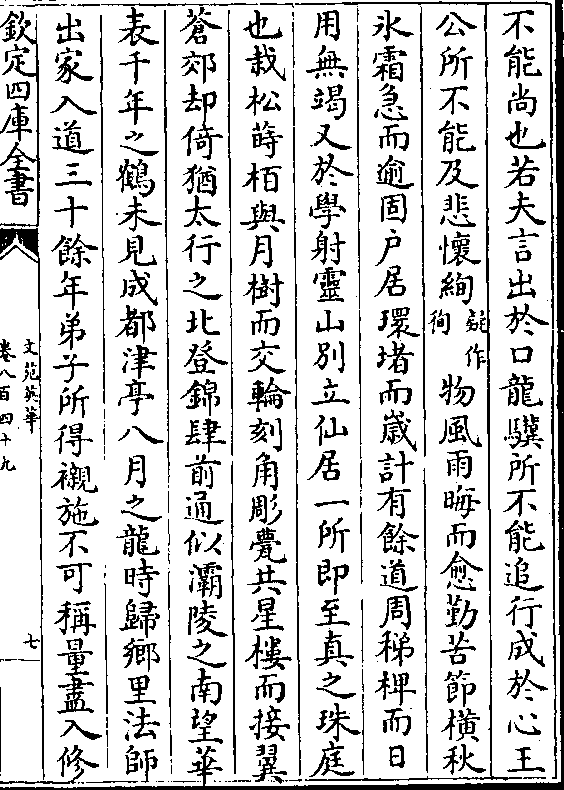 不能尚也若夫言出於口龍驥所不能追行成於心王
公所不能及悲懷絢疑作徇物風雨晦而愈勤苦節橫秋
氷霜急而逾固户居環堵而嵗計有餘道周稊稗而日
用無竭又於學射靈山別立仙居一所即至真之珠庭
也栽松蒔栢與月樹而交輪刻角彫甍共星樓而接翼
蒼郊却倚猶太行之北登錦肆前通似灞陵之南望華
表千年之鶴未見成都津亭八月之龍時歸鄉里法師
出家入道三十餘年弟子所得襯施不可稱量盡入修
欽定四庫全書
文苑英華
卷八百四十九
七